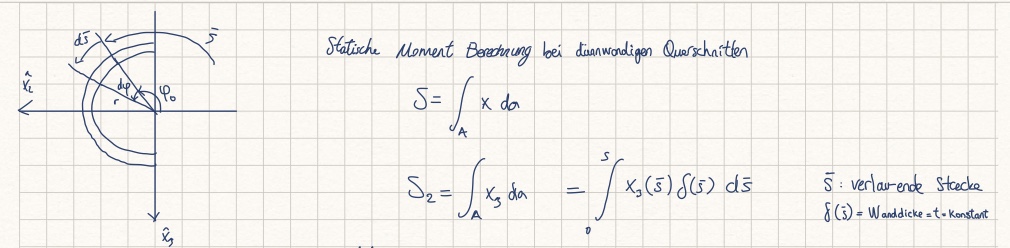 ds̄
s̄
x̂₂
dφ
φ₀
r
x̂₃
Statische Moment Berechnung bei dünnwandigen Querschnitten
S = ∫_A x da
S₂ = ∫_A x₃ da = ∫₀ˢ x₃(s̄) δ(s̄) ds̄
s̄ : verlaufende Strecke
δ(s̄) = Wanddicke = t = konstant